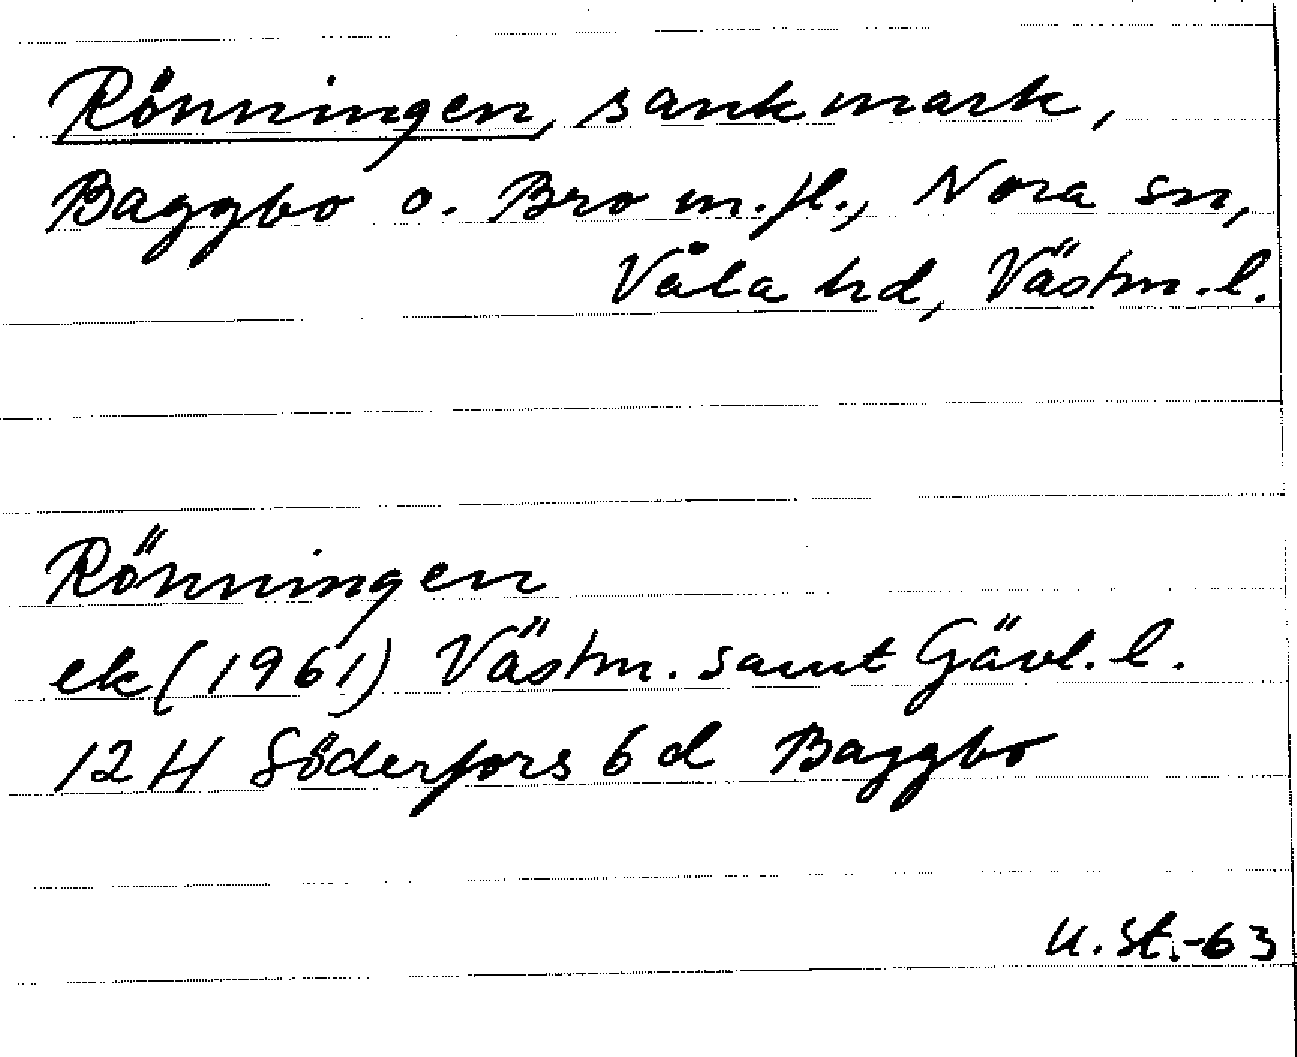 Rönningen, sankmark,
Baggbo o. Bro m.fl., Nora sn,
Våla hd, Västm. l.
Rönningen
ek (1961) Västm. samt Gävl. l.
12 H Söderfors 6 d Baggbo
U. St. -63